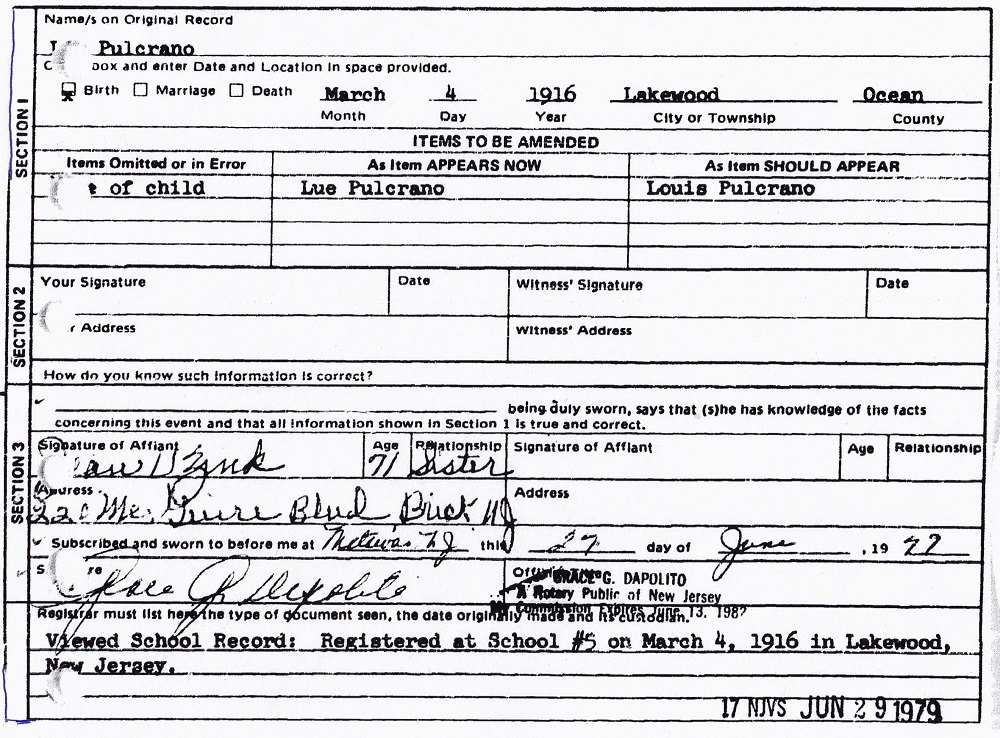 Name/s on Original Record
Pulcrano
box and enter Date and Location in space provided.
Birth Marriage Death March 4 1916 Lakewood Ocean
Month Day Year City or Township County
SECTION 1
ITEMS TO BE AMENDED
Items Omitted or in Error As Item APPEARS NOW As Item SHOULD APPEAR
of child Lue Pulcrano Louis Pulcrano
SECTION 2
Your Signature Date Witness' Signature Date
Address Witness' Address
How do you know such information is correct?
SECTION 3
being duly sworn, says that (s)he has knowledge of the facts
concerning this event and that all information shown in Section 1 is true and correct.
Signature of Affiant Age Relationship Signature of Affiant Age Relationship
71 Sister
Address Address
Blvd Brick NJ
Subscribed and sworn to before me at NJ this 27 day of June , 19
GRACE G. DAPOLITO
A Notary Public of New Jersey
My Commission Expires June 13, 198
Registrar must list here the type of document seen, the date originally made and its custodian.
Viewed School Record: Registered at School #5 on March 4, 1916 in Lakewood,
New Jersey.
17 NJVS JUN 29 1979